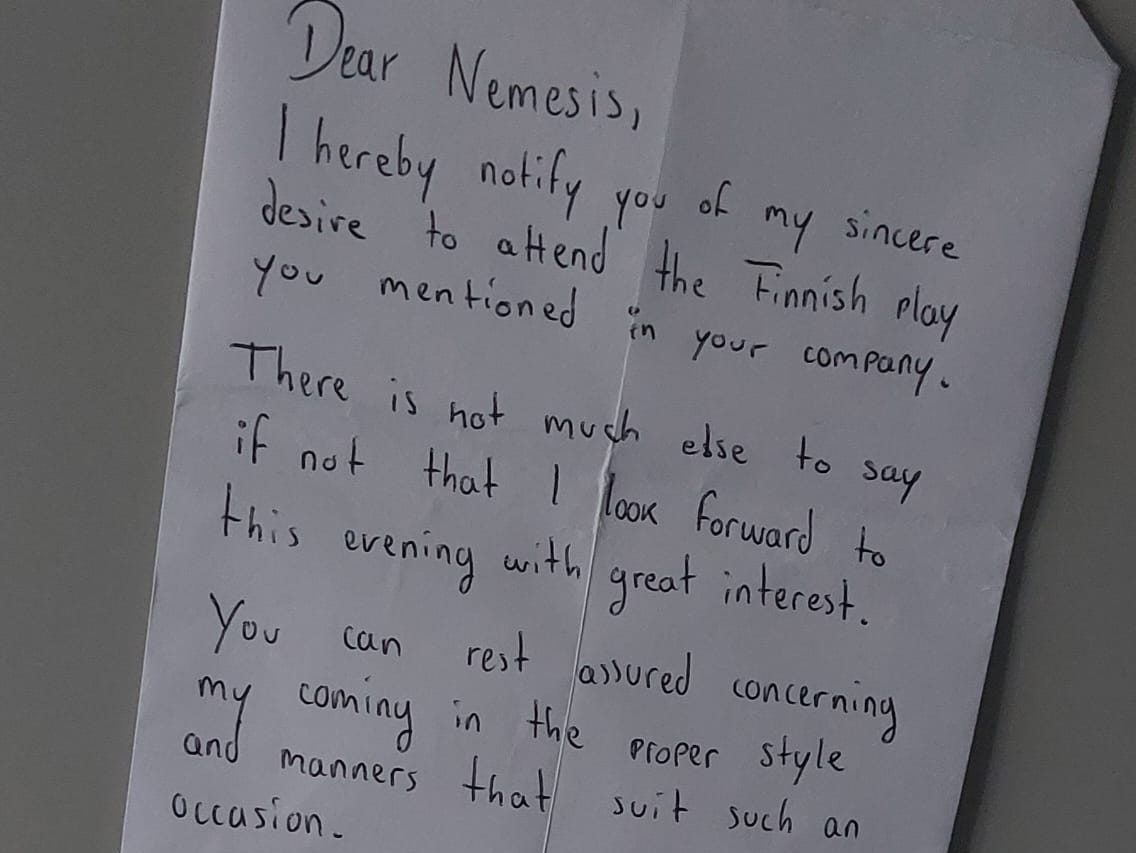 Dear Nemesis,
I hereby notify you of my sincere
desire to attend the Finnish play
you mentioned in your company.
There is not much else to say
if not that I look forward to
this evening with great interest.
You can rest assured concerning
my coming in the proper style
and manners that suit such an
occasion.